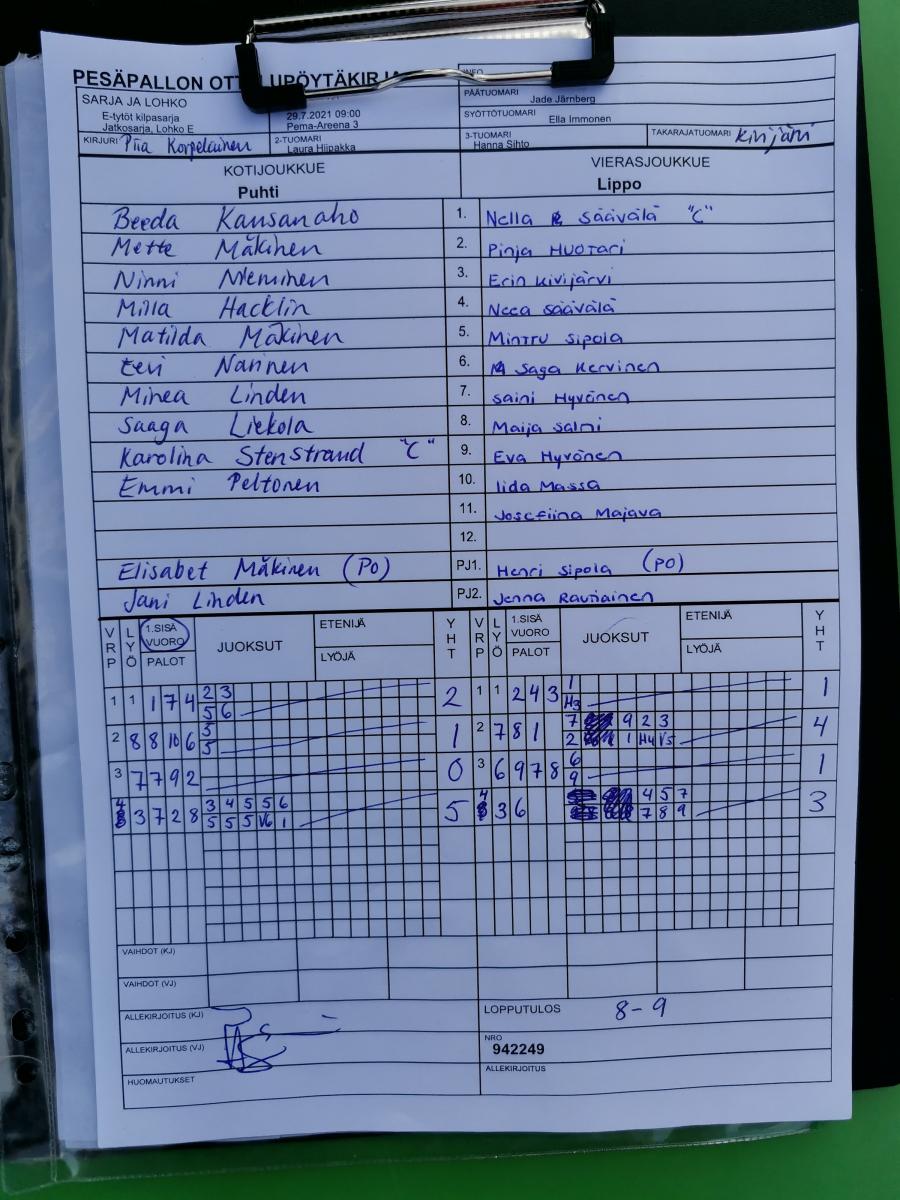 PESÄPALLON OTT LUPÖYTÄKIRJA
SARJA JA LOHKO
E-tytöt kilpasarja
Jatkosarja, Lohko E
29.7.2021 09:00
Pema-Areena 3
INFO
PÄÄTUOMARI Jade Järnberg
SYÖTTÖTUOMARI Ella Immonen
KIRJURI Piia Korpelainen
2-TUOMARI Laura Hiipakka
3-TUOMARI Hanna Sihto
TAKARAJATUOMARI Kivijärvi
KOTIJOUKKUE VIERASJOUKKUE
Puhti Lippo
Beeda Kansanaho 1. Nella Säävälä "C"
Mette Mäkinen 2. Pinja Huotari
Ninni Nieminen 3. Erin Kivijärvi
Milla Hacklin 4. Neea Säävälä
Matilda Mäkinen 5. Minttu Sipola
Eevi Narinen 6. Saga Kervinen
Minea Linden 7. Saini Hyvönen
Saaga Liekola 8. Maija Salmi
Karolina Stenstrand "C" 9. Eva Hyvönen
Emmi Peltonen 10. Iida Massa
11. Josefiina Majava
12.
Elisabet Mäkinen (PO) PJ1. Henri Sipola (PO)
Jani Linden PJ2. Jenna Rautiainen
VRP LYÖ 1.SISÄ VUORO PALOT JUOKSUT ETENIJÄ LYÖJÄ YHT VRP LYÖ 1.SISÄ VUORO PALOT JUOKSUT ETENIJÄ LYÖJÄ YHT
1 1 1 7 4 2 3 2 1 1 2 4 3 1 1
5 6 H3
2 8 8 10 6 3 1 2 7 8 1 7 9 2 3 4
5 2 1 H4 V5
3 7 7 9 2 0 3 6 9 7 8 6 1
9
4 3 7 2 8 3 4 5 5 6 5 4 3 6 4 5 7 3
5 5 5 V6 1 7 8 9
VAIHDOT (KJ)
VAIHDOT (VJ)
ALLEKIRJOITUS (KJ)
LOPPUTULOS 8-9
ALLEKIRJOITUS (VJ)
NRO
942249
HUOMAUTUKSET
ALLEKIRJOITUS